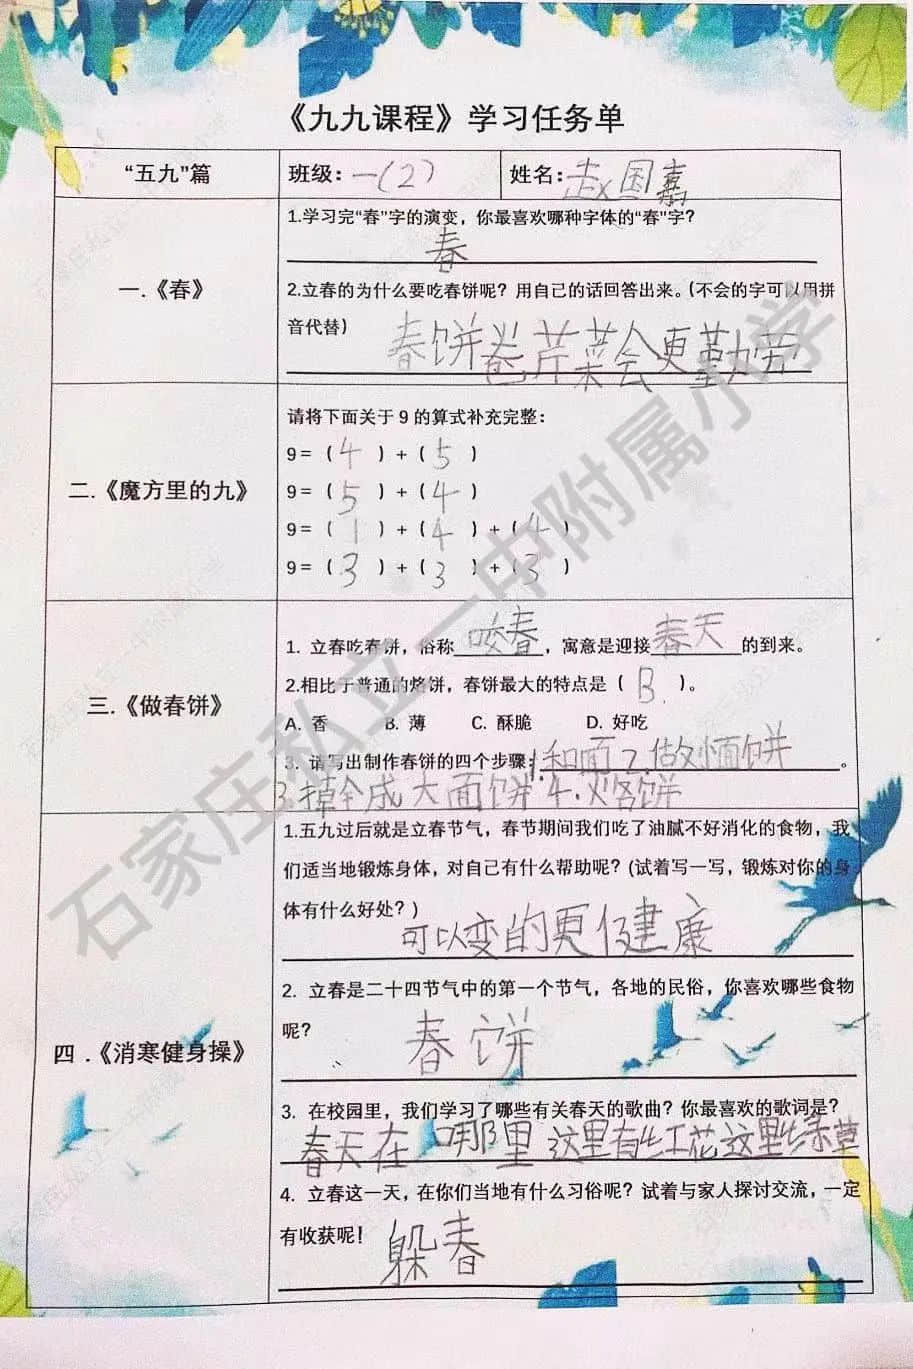 《九九课程》学习任务单
“五九”篇 班级：一(2) 姓名：赵国嘉
一.《春》
1.学习完“春”字的演变，你最喜欢哪种字体的“春”字？
春
2.立春的为什么要吃春饼呢？用自己的话回答出来。(不会的字可以用拼
音代替)
春饼卷芹菜会更勤劳
二.《魔方里的九》
请将下面关于 9 的算式补充完整：
9＝（4）+（5）
9＝（5）+（4）
9＝（1）+（4）+（4）
9＝（3）+（3）+（3）
三.《做春饼》
1. 立春吃春饼，俗称咬春，寓意是迎接春天的到来。
2.相比于普通的烙饼，春饼最大的特点是（B）。
A. 香 B. 薄 C. 酥脆 D. 好吃
3. 请写出制作春饼的四个步骤：1.和面2.做小面饼。
3.擀成大面饼4.烙饼
四.《消寒健身操》
1.五九过后就是立春节气，春节期间我们吃了油腻不好消化的食物，我
们适当地锻炼身体，对自己有什么帮助呢？(试着写一写，锻炼对你的身
体有什么好处？)
可以变的更健康
2. 立春是二十四节气中的第一个节气，各地的民俗，你喜欢哪些食物
呢？
春饼
3. 在校园里，我们学习了哪些有关春天的歌曲？你最喜欢的歌词是？
春天在哪里 这里有红花这里有绿草
4. 立春这一天，在你们当地有什么习俗呢？试着与家人探讨交流，一定
有收获呢！
躲春
石家庄私立一中附属小学